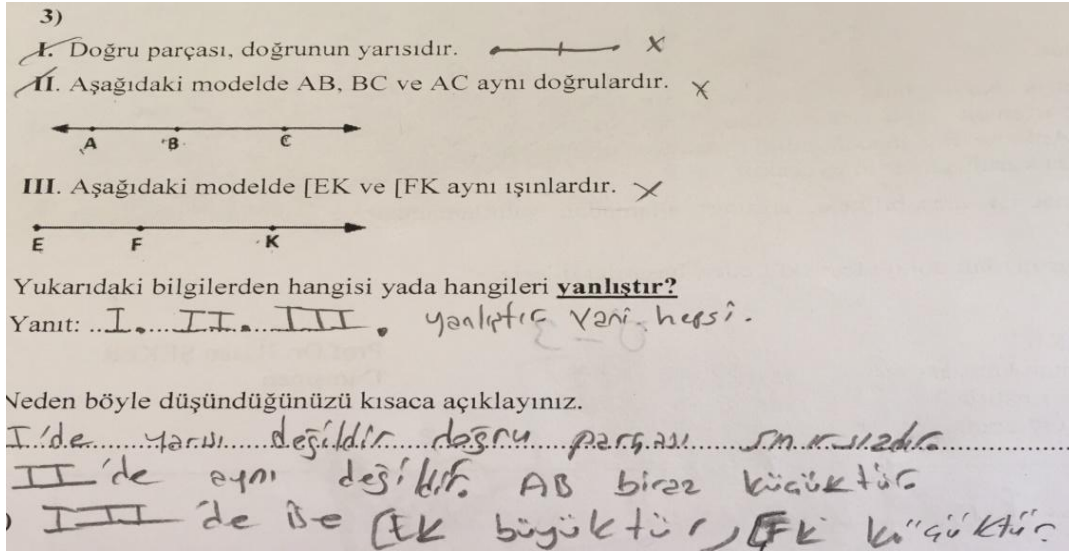 3)
I. Doğru parçası, doğrunun yarısıdır. x
II. Aşağıdaki modelde AB, BC ve AC aynı doğrulardır. x
A B C
III. Aşağıdaki modelde [EK ve [FK aynı ışınlardır. x
E F K
Yukarıdaki bilgilerden hangisi yada hangileri yanlıştır?
Yanıt: ..I....II....III. yanlıştır yani hepsi.
Neden böyle düşündüğünüzü kısaca açıklayınız.
I'de yarısı değildir doğru parçası sınırsızdır.
II'de aynı değildir. AB biraz küçüktür.
III'de ise [EK büyüktür, [FK küçüktür.